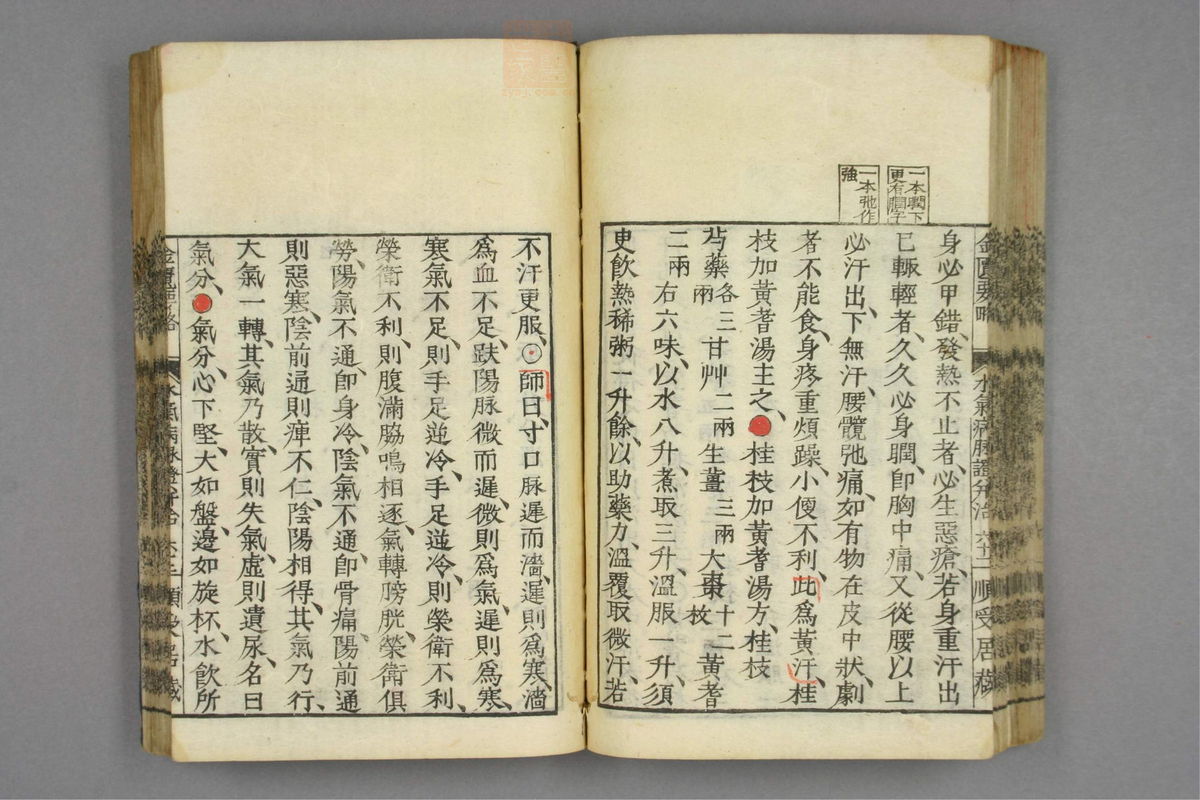 一本瞤下
更有瞤字
一本弛作
強
金匱要略 水氣病脉證并治 六十二 順受居藏
身必甲錯、發熱不止者、必生惡瘡、若身重汗出
已輒輕者、久久必身瞤、卽胸中痛、又從腰以上
必汗出、下無汗、腰髖弛痛、如有物在皮中狀、劇
者不能食、身疼重煩躁、小便不利、此爲黃汗、桂
枝加黃耆湯主之、桂枝加黃耆湯方、桂枝
芍藥各三兩甘艸二兩生薑三兩大棗十二枚黃耆
二兩右六味、以水八升、煮取三升、溫服一升、須
臾飲熱稀粥一升餘、以助藥力、溫覆取微汗、若
不汗更服、師曰、寸口脉遲而濇、遲則爲寒、濇
爲血不足、趺陽脉微而遲、微則爲氣、遲則爲寒、
寒氣不足、則手足逆冷、手足逆冷、則榮衛不利、
榮衛不利、則腹滿脇鳴相逐、氣轉膀胱、榮衛俱
勞、陽氣不通、卽身冷、陰氣不通、卽骨痛、陽前通
則惡寒、陰前通則痺不仁、陰陽相得、其氣乃行、
大氣一轉、其氣乃散、實則失氣、虛則遺尿、名曰
氣分、氣分、心下堅、大如盤、邊如旋杯、水飲所